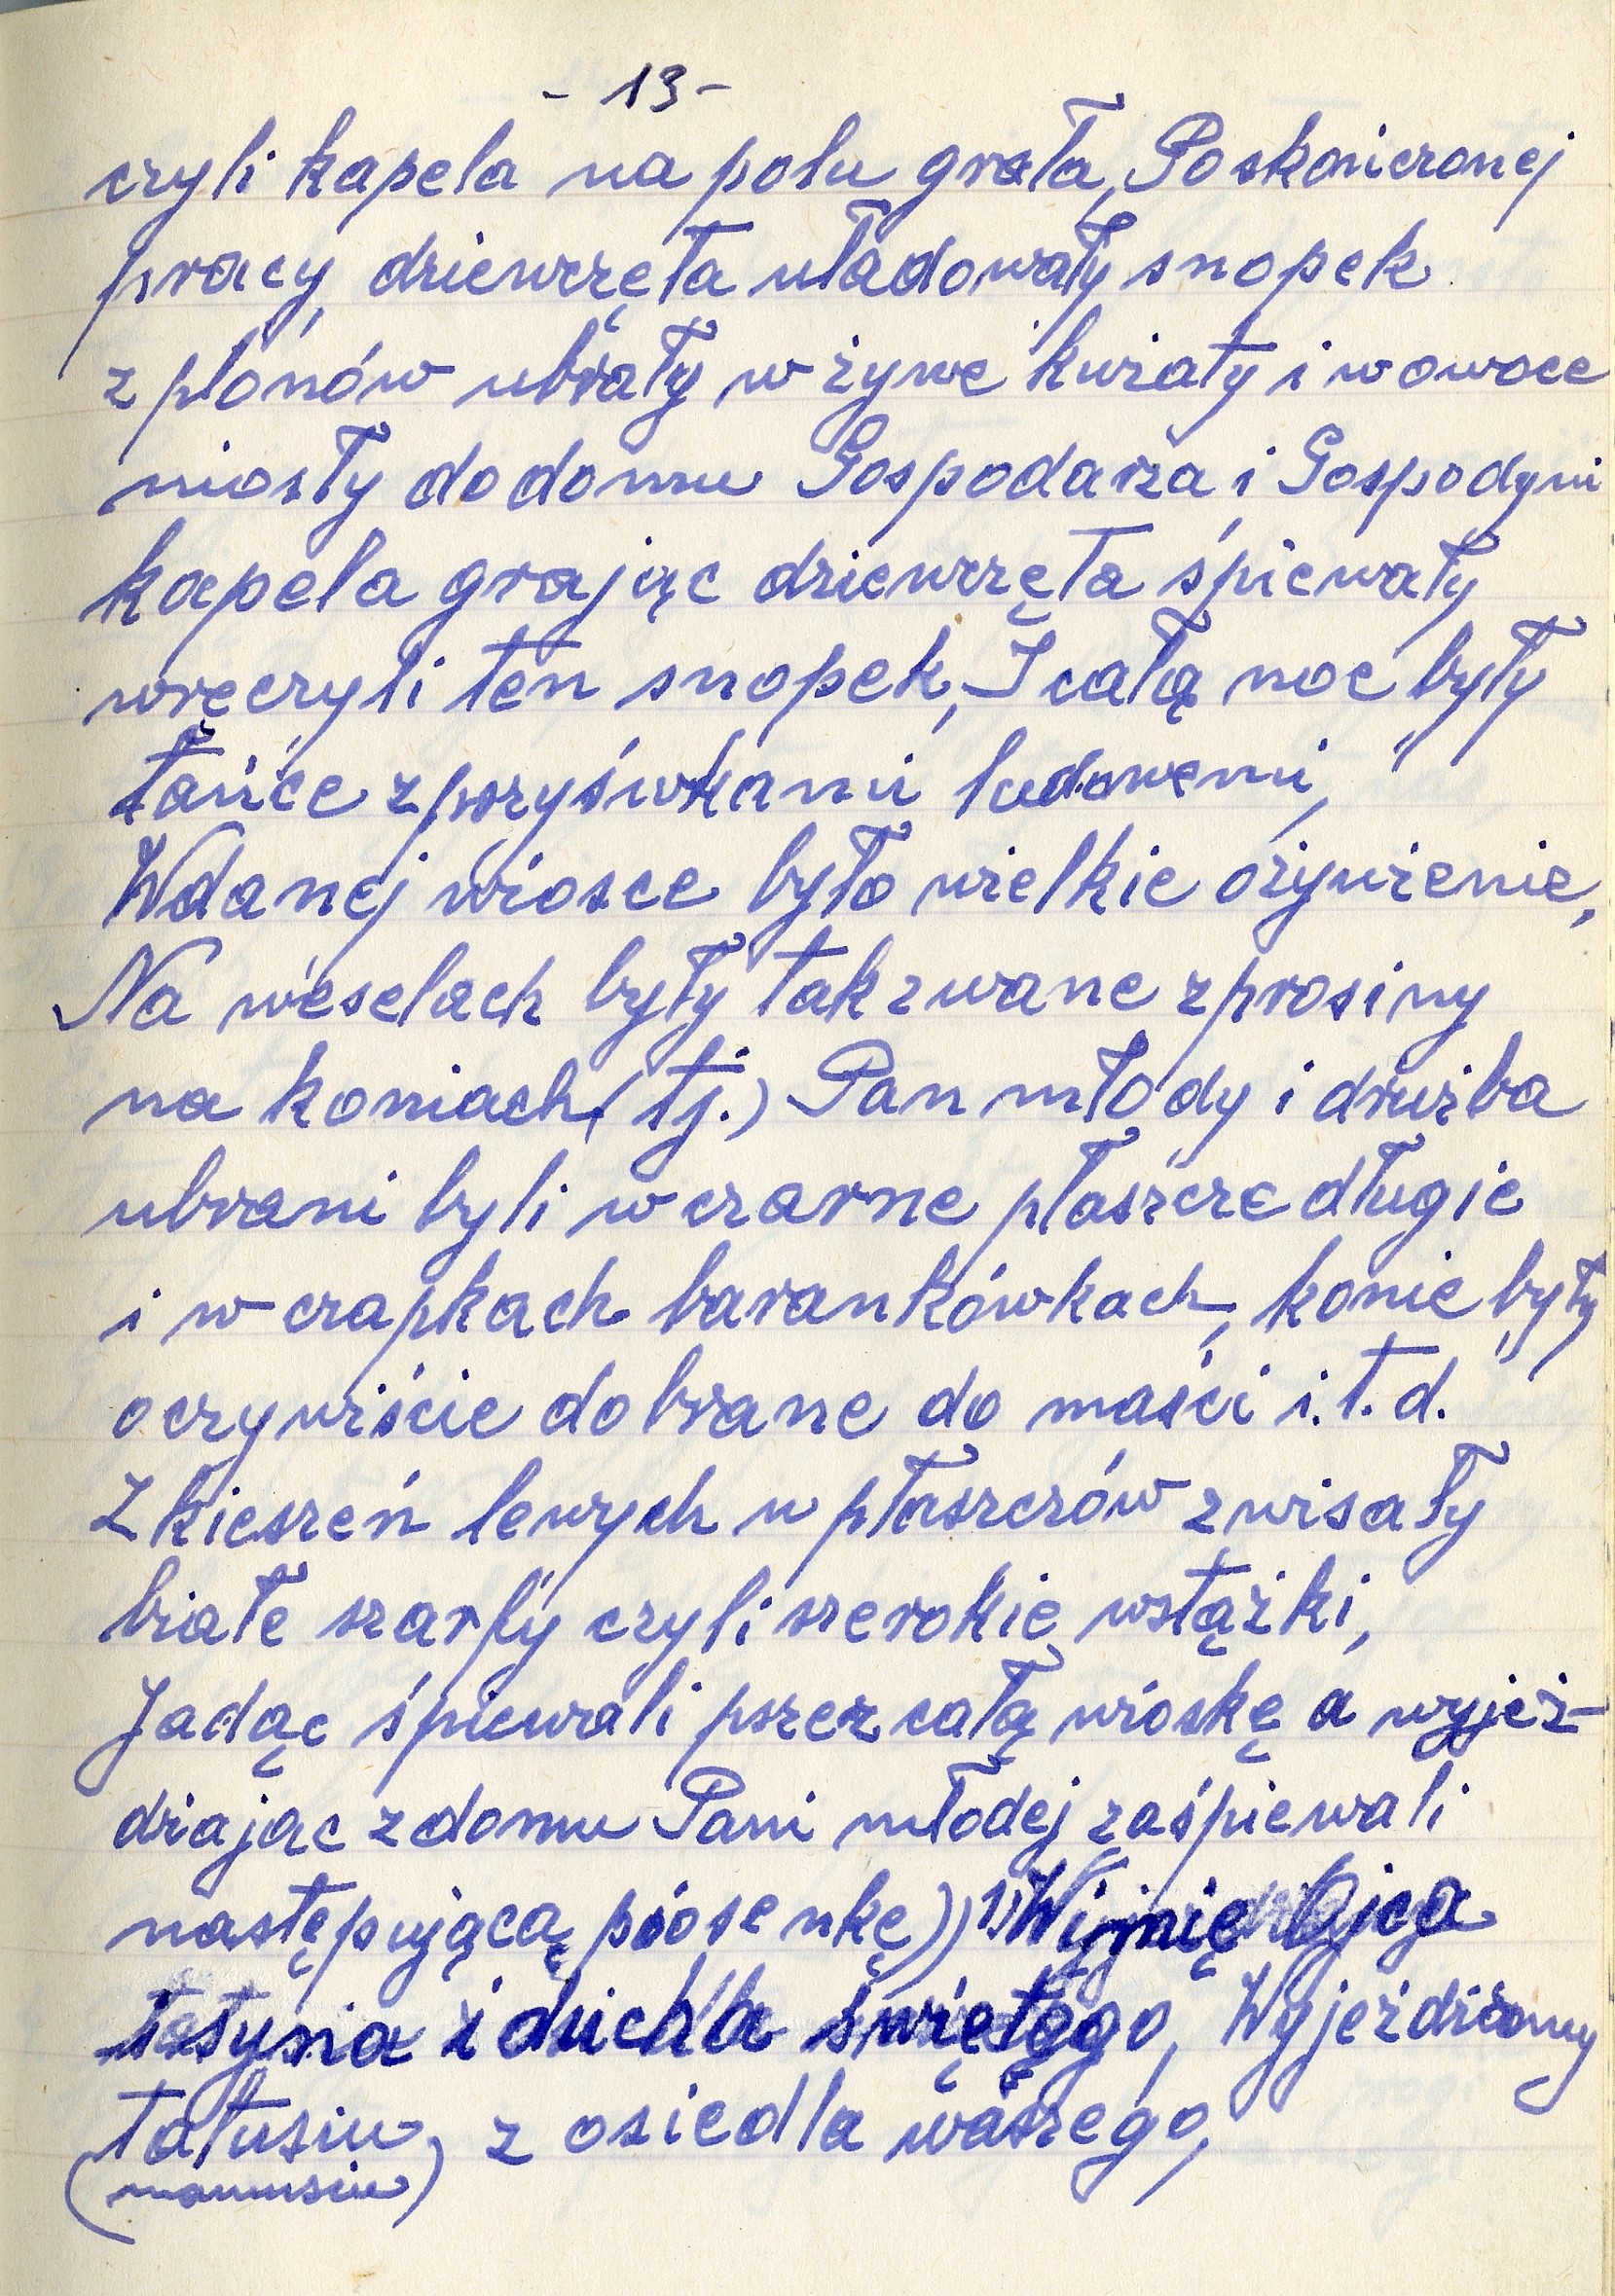 - 13 -
czyli kapela na polu grała, Po skończonej
pracy, dziewczęta uładowały snopek
z plonów ubrały w żywe kwiaty i w owoce
niosły do domu Gospodarza i Gospodyni
kapela grając dziewczęta śpiewały
wręczyli ten snopek, I całą noc były
tańce z przyśwkami ludowemi,
W danej wiosce było wielkie ożywienie,
Na weselach były tak zwane zprosiny
na koniach (tj.) Pan młody i drużba
ubrani byli w czarne płaszcze długie
i w czapkach barankówkach, konie były
oczywiście dobrane do maści i.t.d.
Z kieszeń lewych u płaszczów zwisały
białe szarfy czyli szerokie wstążki,
Jadąc śpiewali przez całą wioskę a wyjeż-
dżając z domu Pani młodej zaśpiewali
następującą piosenkę)) 1) W imię Ojca
i syna i ducha świętego, Wyjeżdżamy
tatusiu z osiedla waszego,
(mamusiu)